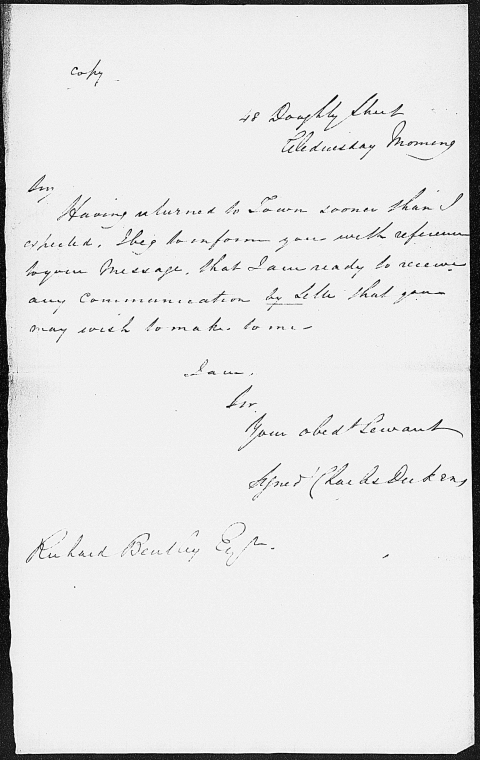 copy
48 Doughty Street
Wednesday Morning
Sir
Having returned to Town sooner than I
expected, I beg to inform you with reference
to your Message, that I am ready to receive
any communication by Letter that you
may wish to make to me—
I am,
Sir,
Your obedt Servant
Signed Charles Dickens
Richard Bentley Esqre.